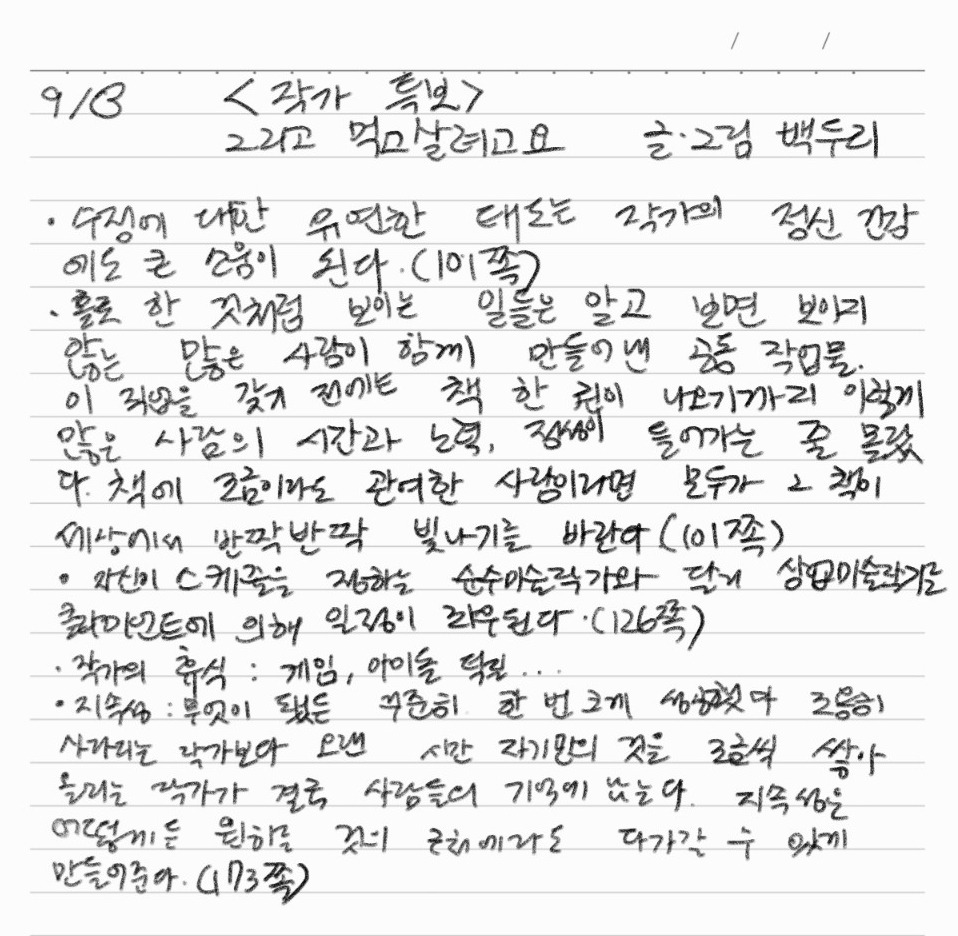 9/13 <작가 특보>
그리고 먹고살려고요 글·그림 백두리
· 수정에 대한 유연한 태도는 작가의 정신 건강
에도 큰 도움이 된다. (101쪽)
· 홀로 한 것처럼 보이는 일들은 알고 보면 보이지
않는 많은 사람이 함께 만들어 낸 공동 작업물.
이 직업을 갖기 전에는 책 한 권이 나오기까지 이렇게
많은 사람의 시간과 노력, 정성이 들어가는 줄 몰랐
다. 책에 조금이라도 관여한 사람이라면 모두가 그 책이
세상에서 반짝반짝 빛나기를 바란다 (101쪽)
· 자신이 스케줄을 정하는 순수미술작가와 달리 상업미술작가는
클라이언트에 의해 일정이 좌우된다. (126쪽)
· 작가의 휴식 : 게임, 아이돌 덕질 ...
· 지속성 : 무엇이 됐든 꾸준히. 한 번 크게 성공했다 조용히
사라지는 작가보다 오랜 시간 자기만의 것을 조금씩 쌓아
올리는 작가가 결국 사람들의 기억에 남는다. 지속성은
어떻게든 원하는 것의 근처에라도 다가갈 수 있게
만들어준다. (173쪽)